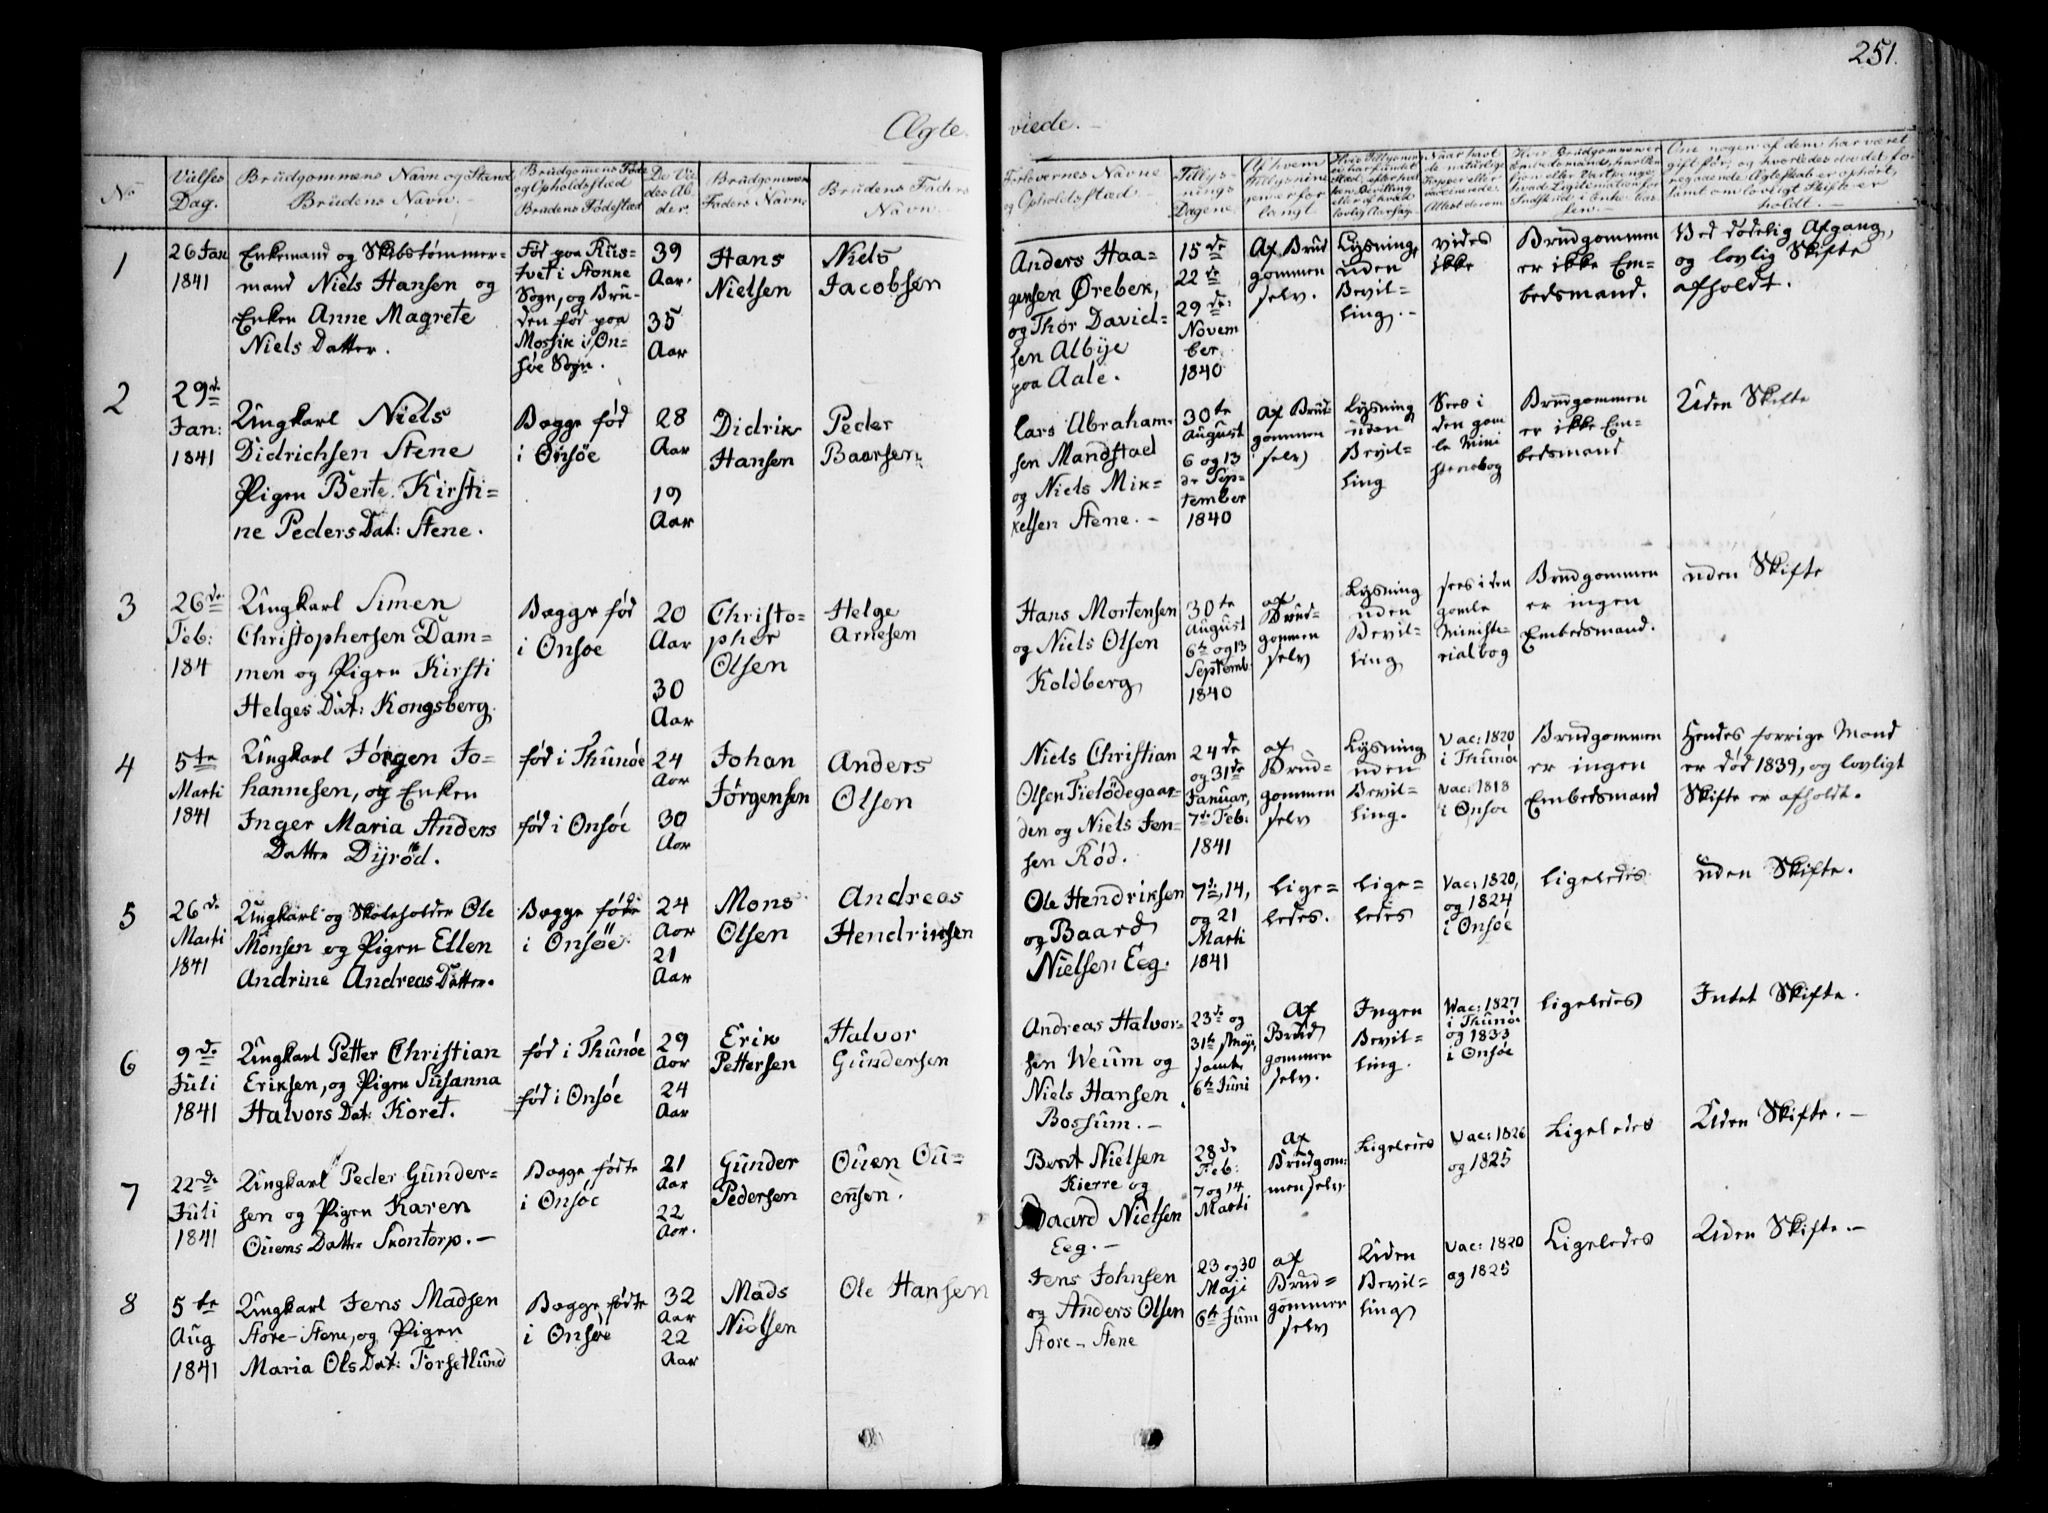 251.
Ægte
viede.
No
Vielses
Dag.
Brudgommens Navn og Stand
Brudens Navn.
Brudgomens Føde
og Opholdsstæd
Brudens Fødestæd
De Vie
des Al-
der.
Brudgommens
Faders Navn
Brudens Faders
Navn.
Forlovernes Navne
og Opholdsstæd
Tillys-
nings
Dagene
Af hvem
Tillysnin-
gen er for
langt
1
26 Jan
1841
Enkemand og Skibstømmer-
mand Niels Hansen og
Enken Anne Magrete
Niels Datter.
Fød paa Rus-
tvet i Tonne
Sogn, og Bru-
den fød paa
Mossik i On-
søe Sogn.
39
Aar.
35
Aar
Hans
Nielsen
Niels
Jacobsen
Anders Haa-
gensen Ørebek,
og Thor David-
sen Albÿe
paa Aale.
15 de
22 de
29 de
Novem
ber
1840
Af Brud
gommen
selv.
Lysning
uden
Bevil-
ling.-
vides
ikke
Brudgommen
er ikke Em-
bedsmand.
Ved dødelig Afgang,
og lovlig Skifte
afholdt.
2
29 de
Jan:
1841
Ungkarl Niels
Didrichsen Stene
Pigen Berte Kirsti-
ne Peders Dat: Stene.
Begge fød
i Onsøe
28
Aar
19
Aar
Didrik
Hansen
Peder
Baarsen
Lars Abraham-
sen Mandstad
og Niels Mik-
kelsen Stene.-
30 te
August
6 og 13
de Sep-
tember
1840
Af Brud-
gommen
selv
Lysning
uden
Bevil-
ling
Sees i
den gam
le Mini
sterebog
Brudgommen
er ikke Em-
bedsmand
Uden Skifte
3
26 de
Feb:
184
Ungkarl Simen
Christophersen Dam-
men og Pigen Kirsti
Helges Dat: Kongsberg.
Begge fød
i Onsøe
20
Aar
30
Aar
Christo-
pher
Olsen
Helge
Arnesen
Hans Mortensen
og Niels Olsen
Koldberg
30 te
August
6 te og 13
Septemb:
1840
af
Brud-
gommen
selv
Lysning
uden
Bevil-
ling
sees i den
gamle
Ministe-
rial bog
Brudgommen
er ingen
Embedsmand.
uden Skifte
4
5 te
Marti
1841
Ungkarl Jørgen Jo-
hannesen, og Enken
Inger Maria Anders
Datter Dÿrød.
fød i Thunøe
fød i Onsøe
24
Aar
30
Aar
Johan
Jørgensen
Anders
Olsen
Niels Christian
Olsen Fieldegaar-
den og Niels Jen-
sen Rød.
24 de
og 31 de
Januar,
7 de Feb:
1841
af
Brud-
gommen
selv
Lysning
uden
Bevil-
ling.
Vac: 1820
i Thunøe
vac: 1818
i Onsøe
Brudgommen
er ingen
Embedsmand
Hendes forrige Mand
er død 1839, og lovligt
Skifte er afholdt.
5
26 de
Marti
1841
Ungkarl og Skoleholder Ole
Monsen og Pigen Ellen
Andrine Andreas Datter.
Begge fødte
i Onsøe.
24
Aar
21
Aar
Mons
Olsen
Andreas
Hendriksen
Ole Hendriksen
og Baard
Nielsen Eeg.
7 de, 14,
og 21
Marti
1841
lige-
ledes.
lige-
ledes
Vac: 1820,
og 1824
i Onsøe
ligeledes
uden Skifte.
6
9 de
Juli
1841
Ungkarl Petter Christian
Eriksen, og Pigen Susanna
Halvors Dat: Koret.
fød i Thunøe
fød i Onsøe
29
Aar
24
Aar
Erik
Pettersen
Halvor
Gundersen
Andreas Halvor-
sen Weum og
Niels Hansen
Bossum.-
23 de og
31 te Maji,
samt
6 te Juni
Af
Brud
gommen
selv.
Ingen
Bevil-
ling.
Wac: 1827
i Thunøe
og 1833
i Onsøe
ligeledes
Intet Skifte.
7
22 de
Juli
1841
Ungkarl Peder Gunder-
sen og Pigen Karen
Ouens Datter Skontorp.-
Begge fødte
i Onsøe
21
Aar
22
Aar.
Gunder
Pedersen
Ouen Ou-
ensen.
Berst Nielsen
Kierre og
Baard Nielsen
Eeg.-
28 de
Feb:
7 og 14
Marti
Af
Brudgom-
men selv
Ligeledes
Vac: 1826
og 1825
Ligeledes
Uden Skifte.-
8
5 te
Aug
1841
Ungkarl Jens Madsen
Store-Stene, og Pigen
Maria Ols Dat: Torsetlund
Begge fødte
i Onsøe
32
Aar
22
Aar
Mads
Nielsen
Ole Hansen
Jens Johnsen
og Anders Olsen
Store-Stene
23 og 30
Maji
6 te Juni
af
Brud-
gommen
selv
Uden
Bevil-
ling
Vac: 1820
og 1825
Ligeledes
Uden Skifte.-